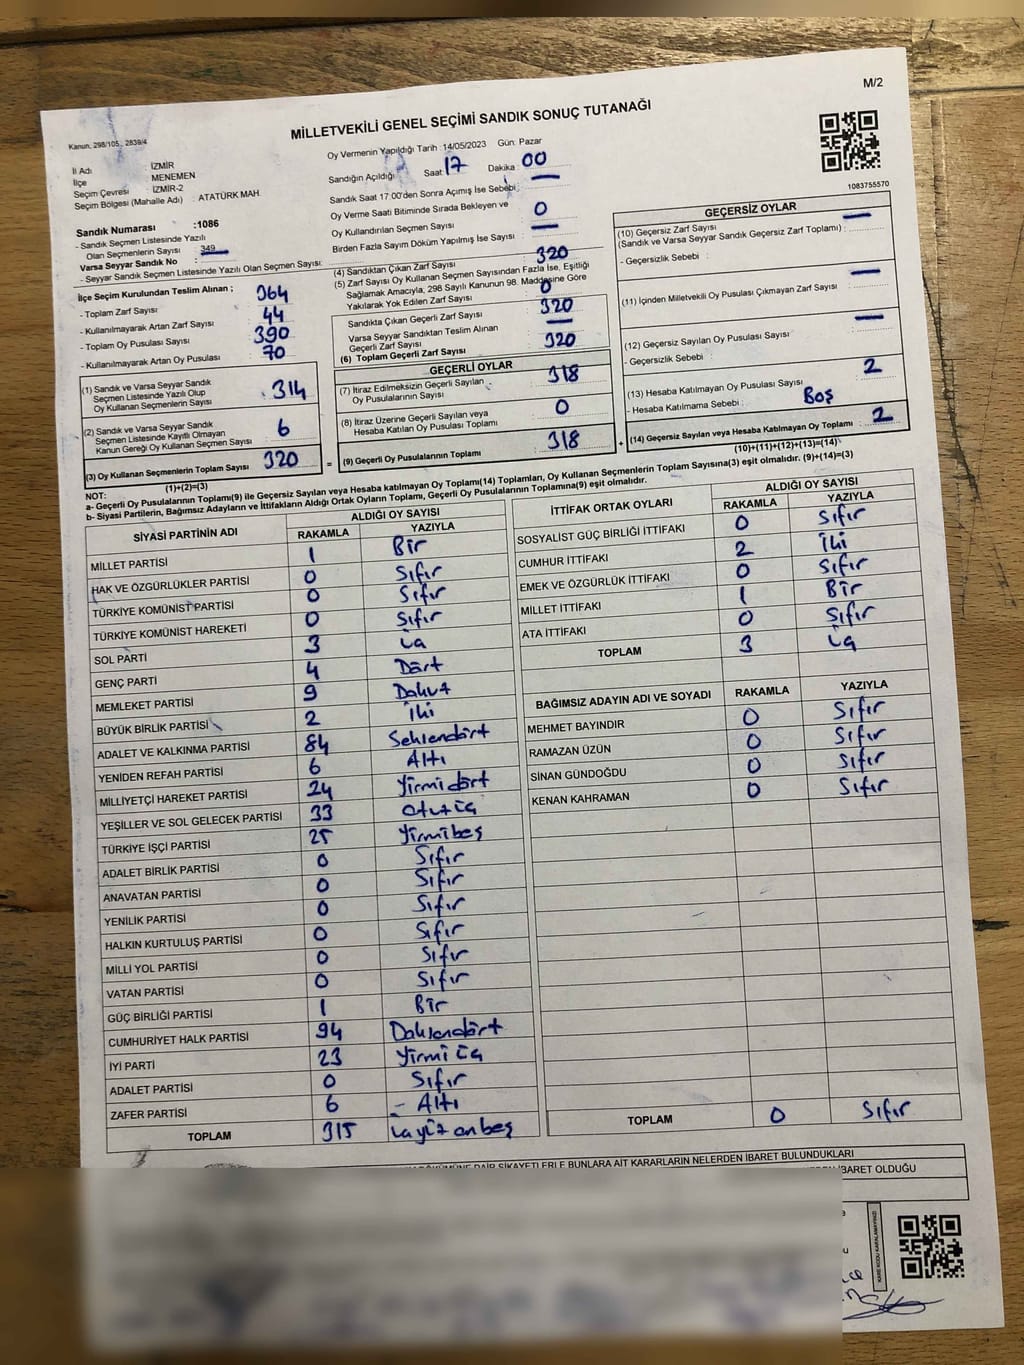 M/2
Kanun, 298/105, 2839/4
MİLLETVEKİLİ GENEL SEÇİMİ SANDIK SONUÇ TUTANAĞI
İl Adı : İZMİR
İlçe : MENEMEN
Seçim Çevresi : İZMİR-2
Seçim Bölgesi (Mahalle Adı) : ATATÜRK MAH.
Sandık Numarası :1086
- Sandık Seçmen Listesinde Yazılı
Olan Seçmenlerin Sayısı : 349
Varsa Seyyar Sandık No :
- Seyyar Sandık Seçmen Listesinde Yazılı Olan Seçmen Sayısı:
Oy Vermenin Yapıldığı Tarih :14/05/2023 Gün: Pazar
Sandığın Açıldığı Saat 17 Dakika 00
Sandık Saat 17:00'den Sonra Açımış İse Sebebi : —
Oy Verme Saati Bitiminde Sırada Bekleyen ve
Oy Kullandırılan Seçmen Sayısı : 0
Birden Fazla Sayım Döküm Yapılmış İse Sayısı : —
1083755570
İlçe Seçim Kurulundan Teslim Alınan ;
- Toplam Zarf Sayısı : 364
- Kullanılmayarak Artan Zarf Sayısı : 44
- Toplam Oy Pusulası Sayısı : 390
- Kullanılmayarak Artan Oy Pusulası : 70
(1) Sandık ve Varsa Seyyar Sandık
Seçmen Listesinde Yazılı Olup
Oy Kullanan Seçmenlerin Sayısı : 314
(2) Sandık ve Varsa Seyyar Sandık
Seçmen Listesinde Kayıtlı Olmayan
Kanun Gereği Oy Kullanan Seçmen Sayısı : 6
(3) Oy Kullanan Seçmenlerin Toplam Sayısı : 320
(1)+(2)=(3)
(4) Sandıktan Çıkan Zarf Sayısı : 320
(5) Zarf Sayısı Oy Kullanan Seçmen Sayısından Fazla İse, Eşitliği
Sağlamak Amacıyla, 298 Sayılı Kanunun 98. Maddesine Göre
Yakılarak Yok Edilen Zarf Sayısı : 0
Sandıkta Çıkan Geçerli Zarf Sayısı : 320
Varsa Seyyar Sandıktan Teslim Alınan
Geçerli Zarf Sayısı : —
(6) Toplam Geçerli Zarf Sayısı : 320
GEÇERLİ OYLAR
(7) İtiraz Edilmeksizin Geçerli Sayılan
Oy Pusulalarının Sayısı : 318
(8) İtiraz Üzerine Geçerli Sayılan veya
Hesaba Katılan Oy Pusulası Toplamı : 0
= (9) Geçerli Oy Pusulalarının Toplamı : 318 +
GEÇERSİZ OYLAR
(10) Geçersiz Zarf Sayısı
(Sandık ve Varsa Seyyar Sandık Geçersiz Zarf Toplamı) : —
- Geçersizlik Sebebi :
(11) İçinden Milletvekili Oy Pusulası Çıkmayan Zarf Sayısı : —
(12) Geçersiz Sayılan Oy Pusulası Sayısı : —
- Geçersizlik Sebebi :
(13) Hesaba Katılmayan Oy Pusulası Sayısı : 2
- Hesaba Katılmama Sebebi : Boş
(14) Geçersiz Sayılan veya Hesaba Katılmayan Oy Toplamı : 2
(10)+(11)+(12)+(13)=(14)
NOT:
a- Geçerli Oy Pusulalarının Toplamı(9) ile Geçersiz Sayılan veya Hesaba katılmayan Oy Toplamı(14) Toplamları, Oy Kullanan Seçmenlerin Toplam Sayısına(3) eşit olmalıdır. (9)+(14)=(3)
b- Siyasi Partilerin, Bağımsız Adayların ve İttifakların Aldığı Ortak Oyların Toplamı, Geçerli Oy Pusulalarının Toplamına(9) eşit olmalıdır.
SİYASİ PARTİNİN ADI ALDIĞI OY SAYISI
RAKAMLA YAZIYLA
MİLLET PARTİSİ 1 Bir
HAK VE ÖZGÜRLÜKLER PARTİSİ 0 Sıfır
TÜRKİYE KOMÜNİST PARTİSİ 0 Sıfır
TÜRKİYE KOMÜNİST HAREKETİ 0 Sıfır
SOL PARTİ 3 üç
GENÇ PARTİ 4 Dört
MEMLEKET PARTİSİ 9 Dokuz
BÜYÜK BİRLİK PARTİSİ 2 İki
ADALET VE KALKINMA PARTİSİ 84 Seksendört
YENİDEN REFAH PARTİSİ 6 Altı
MİLLİYETÇİ HAREKET PARTİSİ 24 Yirmidört
YEŞİLLER VE SOL GELECEK PARTİSİ 33 otuzüç
TÜRKİYE İŞÇİ PARTİSİ 25 Yirmibeş
ADALET BİRLİK PARTİSİ 0 Sıfır
ANAVATAN PARTİSİ 0 Sıfır
YENİLİK PARTİSİ 0 Sıfır
HALKIN KURTULUŞ PARTİSİ 0 Sıfır
MİLLİ YOL PARTİSİ 0 Sıfır
VATAN PARTİSİ 0 Sıfır
GÜÇ BİRLİĞİ PARTİSİ 1 Bir
CUMHURİYET HALK PARTİSİ 94 Doksandört
İYİ PARTİ 23 Yirmi üç
ADALET PARTİSİ 0 Sıfır
ZAFER PARTİSİ 6 – Altı
TOPLAM 315 üçyüz onbeş
İTTİFAK ORTAK OYLARI ALDIĞI OY SAYISI
RAKAMLA YAZIYLA
SOSYALİST GÜÇ BİRLİĞİ İTTİFAKI 0 Sıfır
CUMHUR İTTİFAKI 2 İki
EMEK VE ÖZGÜRLÜK İTTİFAKI 0 Sıfır
MİLLET İTTİFAKI 1 Bir
ATA İTTİFAKI 0 Sıfır
TOPLAM 3 üç
BAĞIMSIZ ADAYIN ADI VE SOYADI RAKAMLA YAZIYLA
MEHMET BAYINDIR 0 Sıfır
RAMAZAN ÜZÜN 0 Sıfır
SİNAN GÜNDOĞDU 0 Sıfır
KENAN KAHRAMAN 0 Sıfır
TOPLAM 0 Sıfır
DAİR ŞİKAYETLERLE BUNLARA AİT KARARLARIN NELERDEN İBARET BULUNDUKLARI
İBARET OLDUĞU
KARE KODU KARALAMAYINIZ!